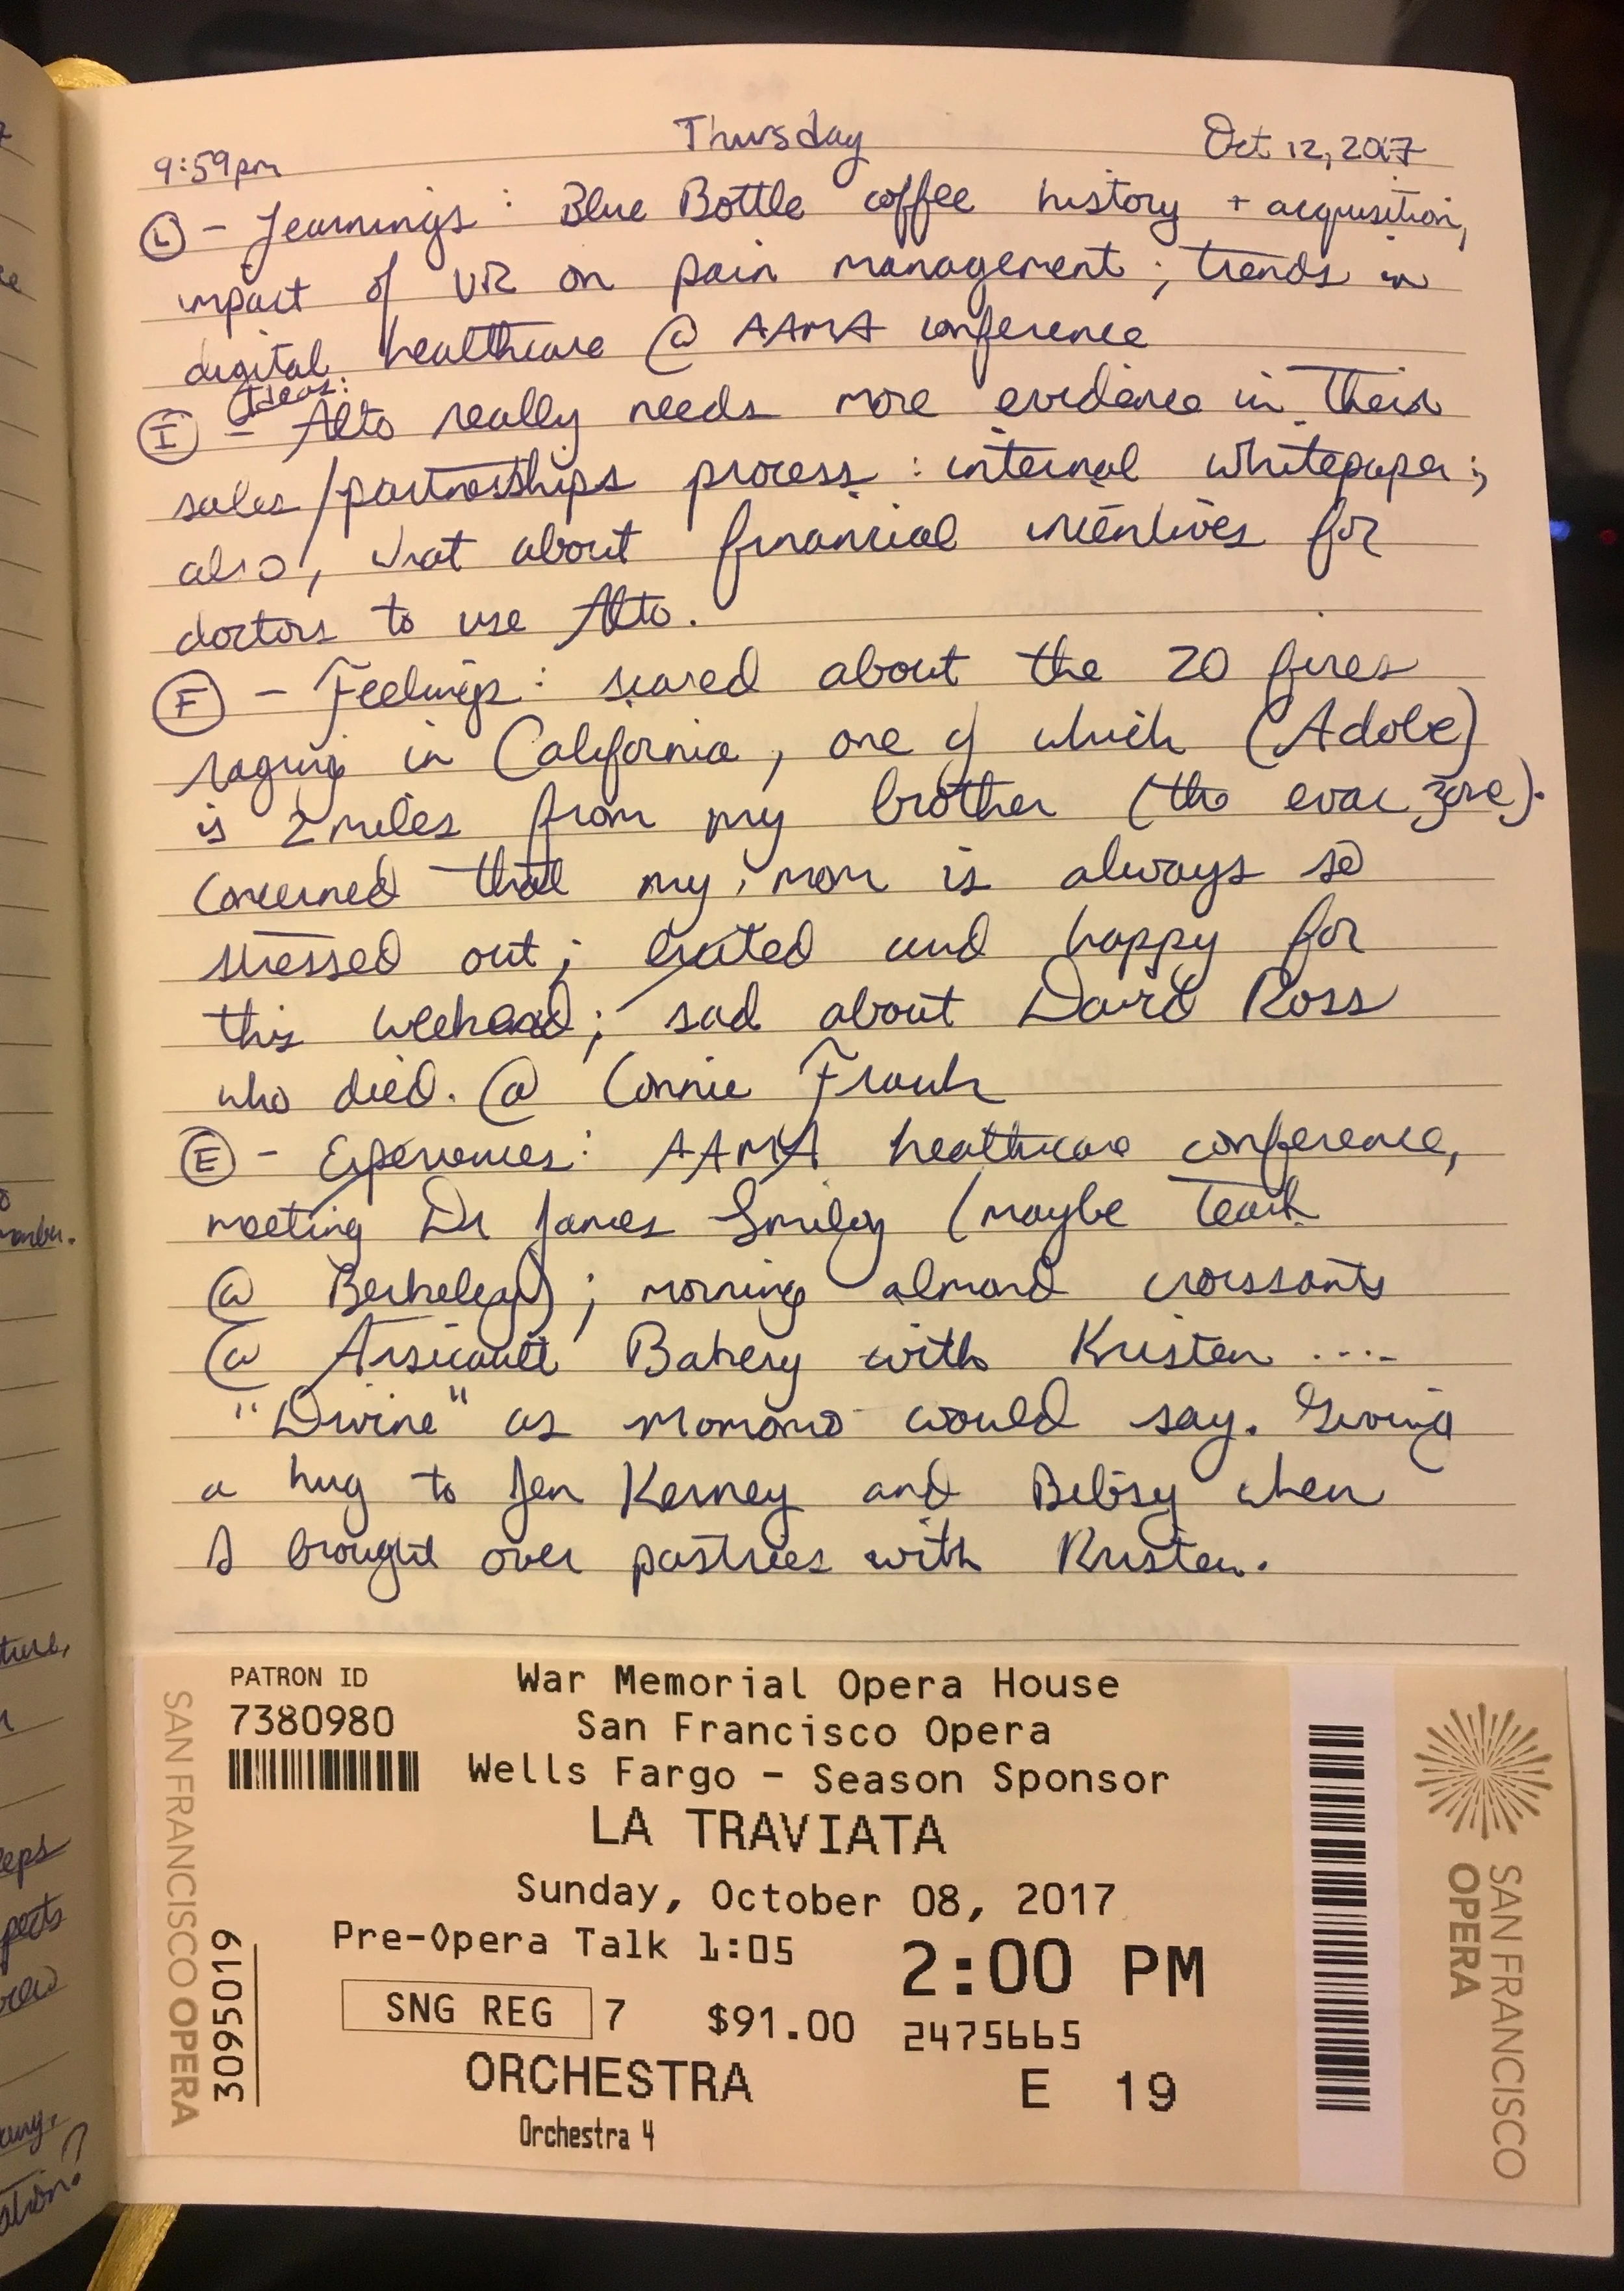 Thursday
9:59pm
Oct 12, 2017
(L) - Learnings: Blue Bottle coffee history + acquisition,
impact of VR on pain management; trends in
digital healthcare @ AAMA conference
(I) - Ideas: Alto really needs more evidence in their
sales/partnerships process: internal whitepaper;
also, what about financial incentives for
doctors to use Alto.
(F) - Feelings: scared about the 20 fires
raging in California, one of which (Adobe)
is 2 miles from my brother (the evac zone).
Concerned that my mom is always so
stressed out; excited and happy for
this weekend; sad about David Ross
who died. @ Connie Frank
(E) - Experiences: AAMA healthcare conference,
meeting Dr James Smiley (maybe teach
@ Berkeley); morning almond croissants
@ Arsicault Bakery with Kristen ....
"Divine" as Momomo would say. Giving
a hug to Jen Kerney and when
I brought over pastries with Kristen.
PATRON ID
7380980
War Memorial Opera House
San Francisco Opera
Wells Fargo - Season Sponsor
LA TRAVIATA
Sunday, October 08, 2017
Pre-Opera Talk 1:05
2:00 PM
SNG REG 7 $91.00 2475665
ORCHESTRA E 19
Orchestra 4
SAN FRANCISCO OPERA
30695019
SAN FRANCISCO
OPERA
member.